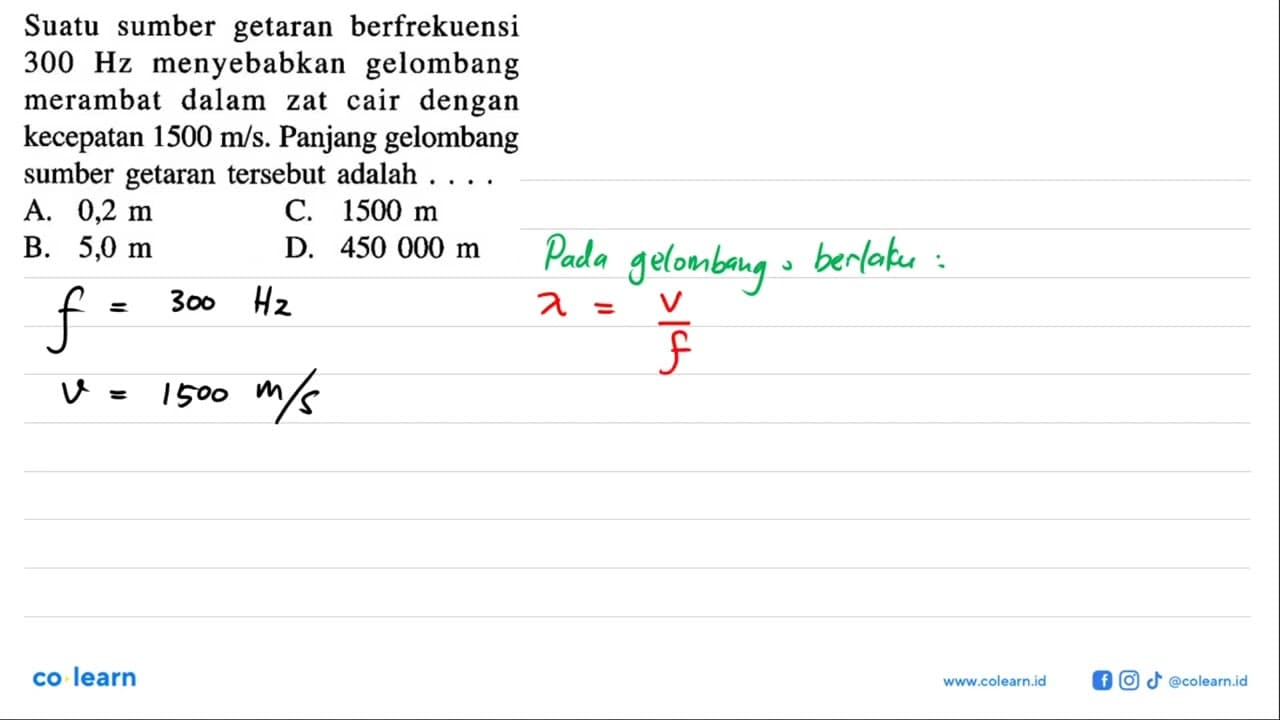 Suatu sumber getaran berfrekuensi
300 Hz menyebabkan gelombang
merambat dalam zat cair dengan
kecepatan 1500 m/s. Panjang gelombang
sumber getaran tersebut adalah . . . .
A. 0,2 m C. 1500 m
B. 5,0 m D. 450 000 m
Pada gelombang, berlaku :
f = 300 Hz
λ = v/f
v = 1500 m/s
co learn
www.colearn.id @colearn.id